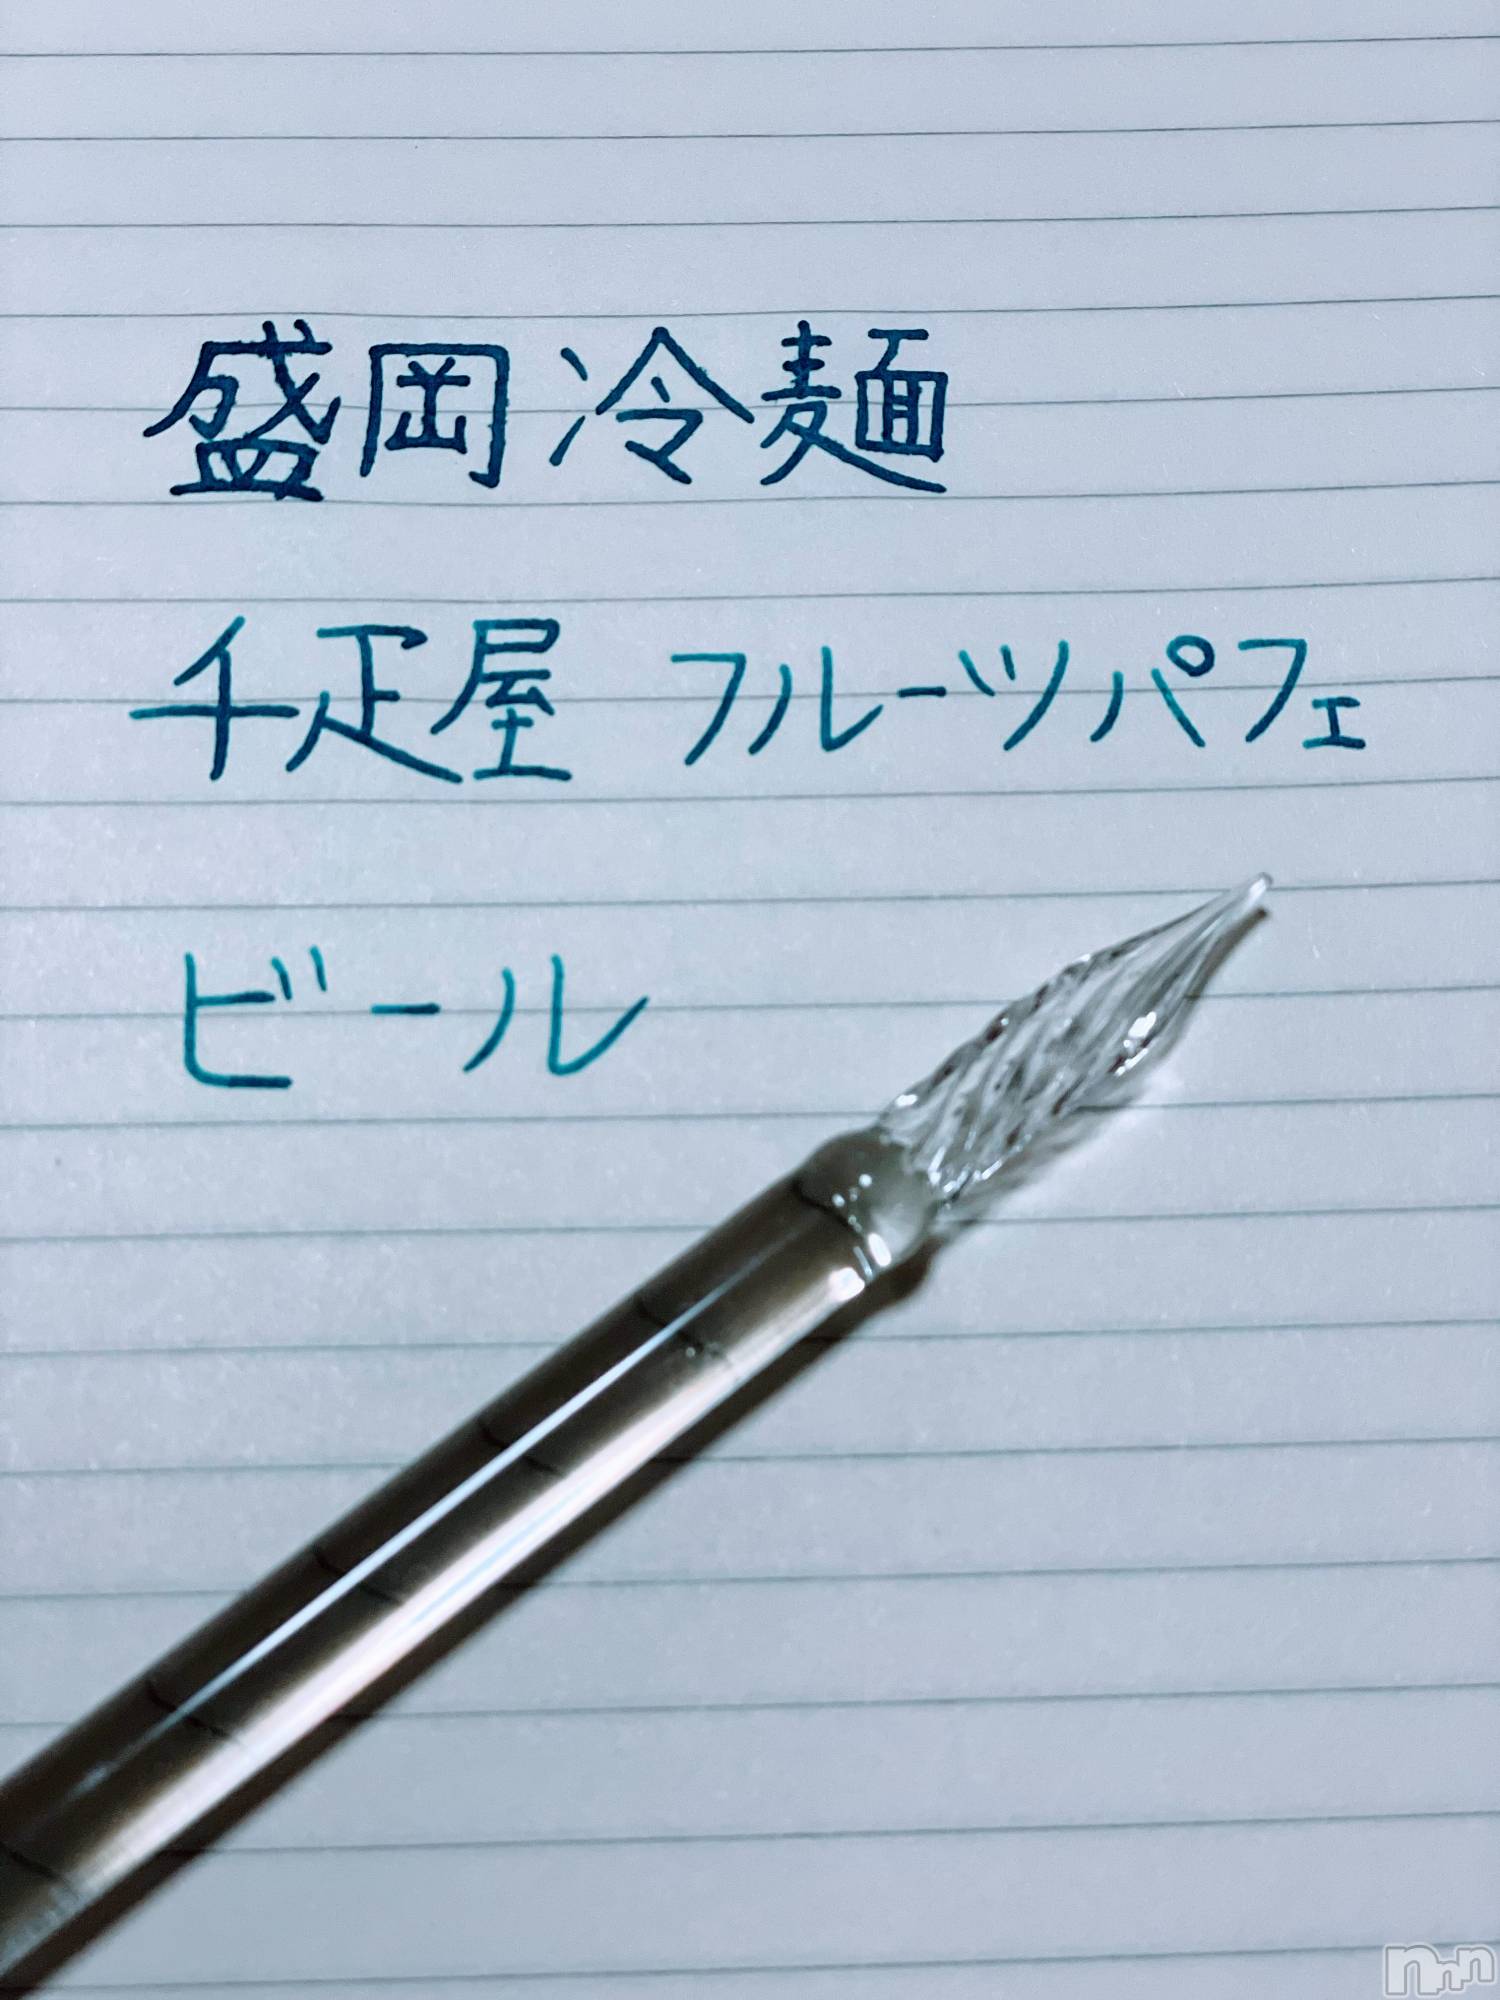 盛岡冷麺
千疋屋 フルーツパフェ
ビール
nnn